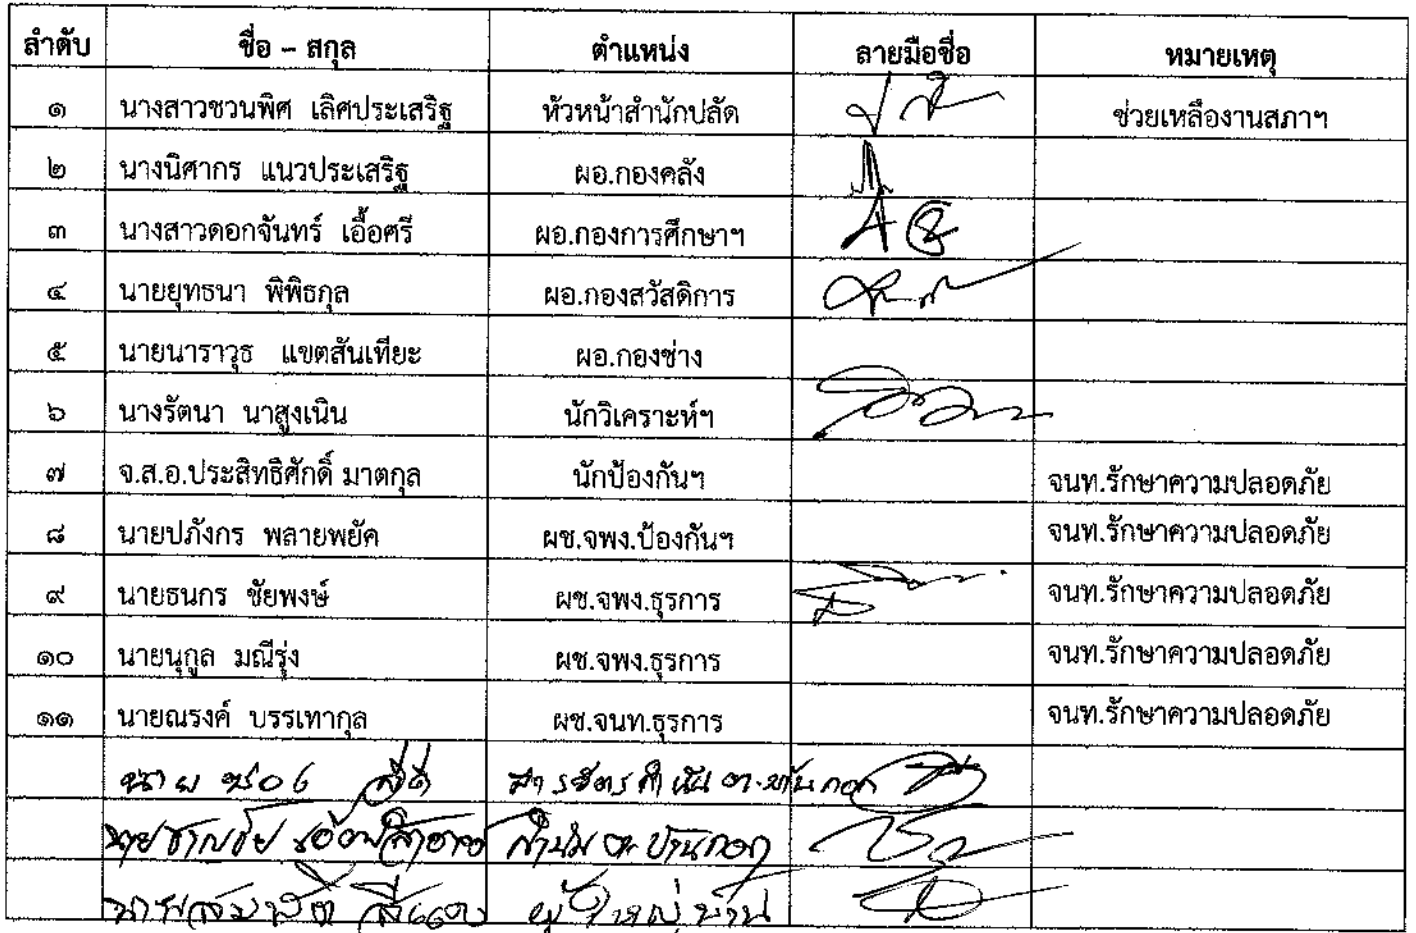 ลำดับ ชื่อ – สกุล ตำแหน่ง ลายมือชื่อ หมายเหตุ
๑ นางสาวชวนพิศ เลิศประเสริฐ หัวหน้าสำนักปลัด ช่วยเหลืองานสภาฯ
๒ นางนิศากร แนวประเสริฐ ผอ.กองคลัง
๓ นางสาวดอกจันทร์ เอื้อศรี ผอ.กองการศึกษาฯ
๔ นายยุทธนา พิพิธกุล ผอ.กองสวัสดิการ
๕ นายนาราวุธ แขตสันเทียะ ผอ.กองช่าง
๖ นางรัตนา นาสูงเนิน นักวิเคราะห์ฯ
๗ จ.ส.อ.ประสิทธิศักดิ์ มาตกุล นักป้องกันฯ จนท.รักษาความปลอดภัย
๘ นายปภังกร พลายพยัค ผช.จพง.ป้องกันฯ จนท.รักษาความปลอดภัย
๙ นายธนกร ชัยพงษ์ ผช.จพง.ธุรการ จนท.รักษาความปลอดภัย
๑๐ นายนุกูล มณีรุ่ง ผช.จพง.ธุรการ จนท.รักษาความปลอดภัย
๑๑ นายณรงค์ บรรเทากุล ผช.จนท.ธุรการ จนท.รักษาความปลอดภัย
นาย สารวัตรกำนัน ต.บ้านกอก
นายชาญชัย กำนัน ต.บ้านกอก
ผู้ใหญ่บ้าน